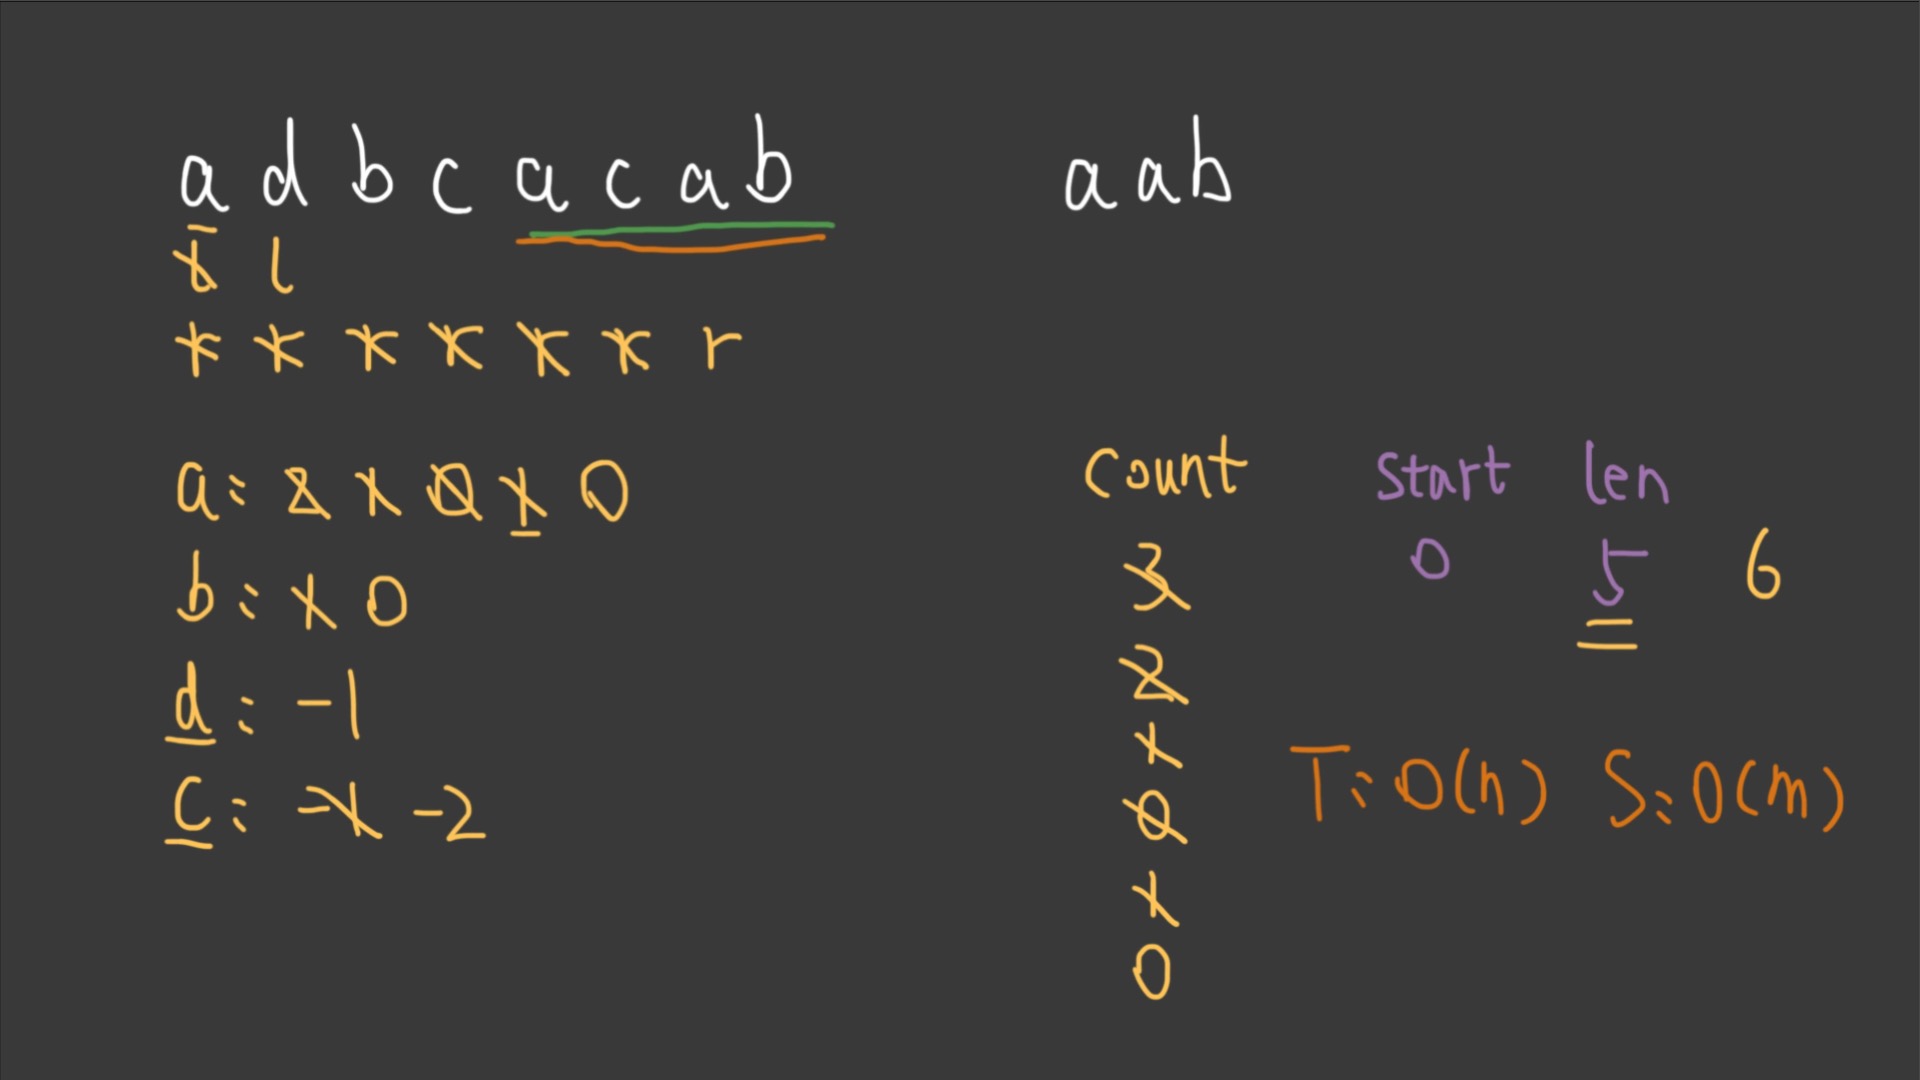 a d b c a c a b
aab
l
r
a: 2 1 0 1 0
b: 1 0
d: -1
c: -1 -2
count
3
2
1
0
1
0
start len
0 5 6
T: O(n) S: O(m)